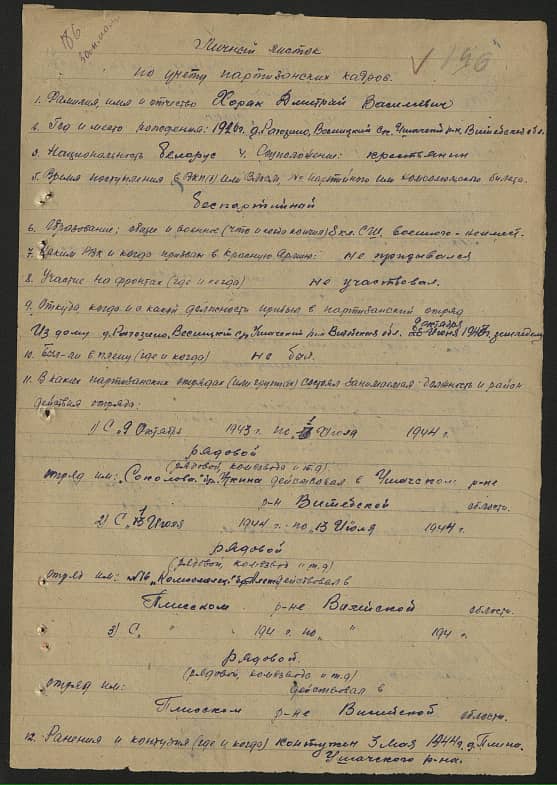 186
196
Личный листок
по учету партизанских кадров.
1. Фамилия, имя и отчество Хорак Дмитрий Васильевич
2. Год и место рождения: 1926 г. д. Рогозино, Весницкий с/с, Ушачский р-н, Витебской обл.
3. Национальность белорус 4. Соцположение: крестьянин
5. Время поступления в ВКП(б) или ВЛКСМ, № партийного или комсомольского билета.
беспартийный
6. Образование: общее и военное (что и когда кончил) 8 кл. СШ, военного - неимеет.
7. Каким РВК и когда призван в Красную Армию: не призывался
8. Участие на фронтах (где и когда) не участвовал.
9. Откуда, когда и в какой должности прибыл в партизанский отряд
9 октября
Из дому д. Рогозино, Весницкий с/с, Ушачский р-н Витебская обл. Июня 1943 г.
10. Был-ли в плену (где и когда) не был.
11. В каких партизанских отрядах (или группах) состоял занимаемая должность и район
действия отряда:
1) С 9 Октября 1943 г. по 1 Июля 1944 г.
рядовой
(рядовой, комвзвода и т.д)
отряд им: "Соколова" бр. действовал в Ушачском р-не
р-н Витебской область.
2) С 1 Июля 1944 г. - по 13 Июля 1944 г.
рядовой
(рядовой, комвзвода и т.д)
Отряд им: №16 "Комсомолец" бр. действовал в
Плисском р-не Вилейской область.
3) С " 194 г. по " 194 г.
рядовой.
(рядовой, комвзвода и т.д)
отряд им: действовал в
Плисском р-не Вилейской область.
12. Ранения и контузия (где и когда) контужен 3 мая 1944 г. д. Плино.
Ушачского р-на.